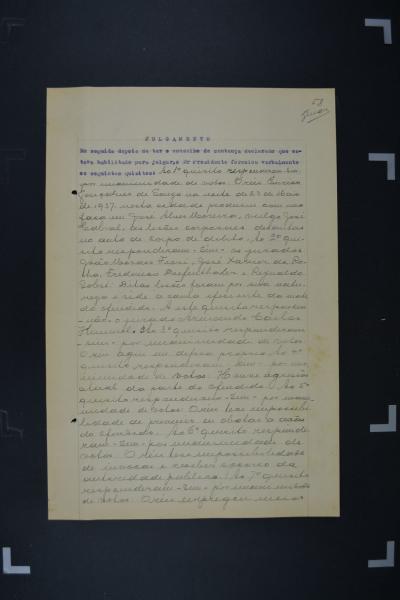 53
JULGAMENTO
Em seguida depois de ter o conselho de sentença declarado que es-
tava habilitado para julgar, o Dr Presidente formulou verbalmente
os seguintes quisitos: Ao 1º quisito responderam sim
por unanimidade de votos. O réu
Gonçalves de Souza na noite de 23 de Maio
de 1937, nesta cidade produziu com uma
faca em José Alves Moreira, vulgo José
Cabral, as lesões corporaes descritas
no auto de corpo de delito? Ao 2º que-
sito responderam - Sim - os jurados
João Moraes, José Xavier da Ro-
cha, Frederico e Reynaldo
Sobré. Ditas lesões foram por sua natu-
reza e séde, a causa efficiente da morte
do ofendido? A este quisito respondeu
- não - o jurado Armando Carlos
Hummel. Ao 3º quisito responderam
- sim - por unanimidade de votos.
O réu agiu em defesa propria? Ao 4º
quisito responderam - sim - por una-
nimidade de votos. Houve agressão
atual da parte do ofendido? Ao 5º
quisito responderam - Sim - por unani-
midade de votos. O réu teve impossibi-
lidade de prevenir ou obstar a ação
do ofendido? Ao 6º quisito responde-
ram - Sim - por unanimidade de
votos. O réu teve impossibilidade
de invocar e receber socorro da
autoridade publica? Ao 7º quisito
responderam - Sim - por unanimidade
de votos. O réu empregou meios